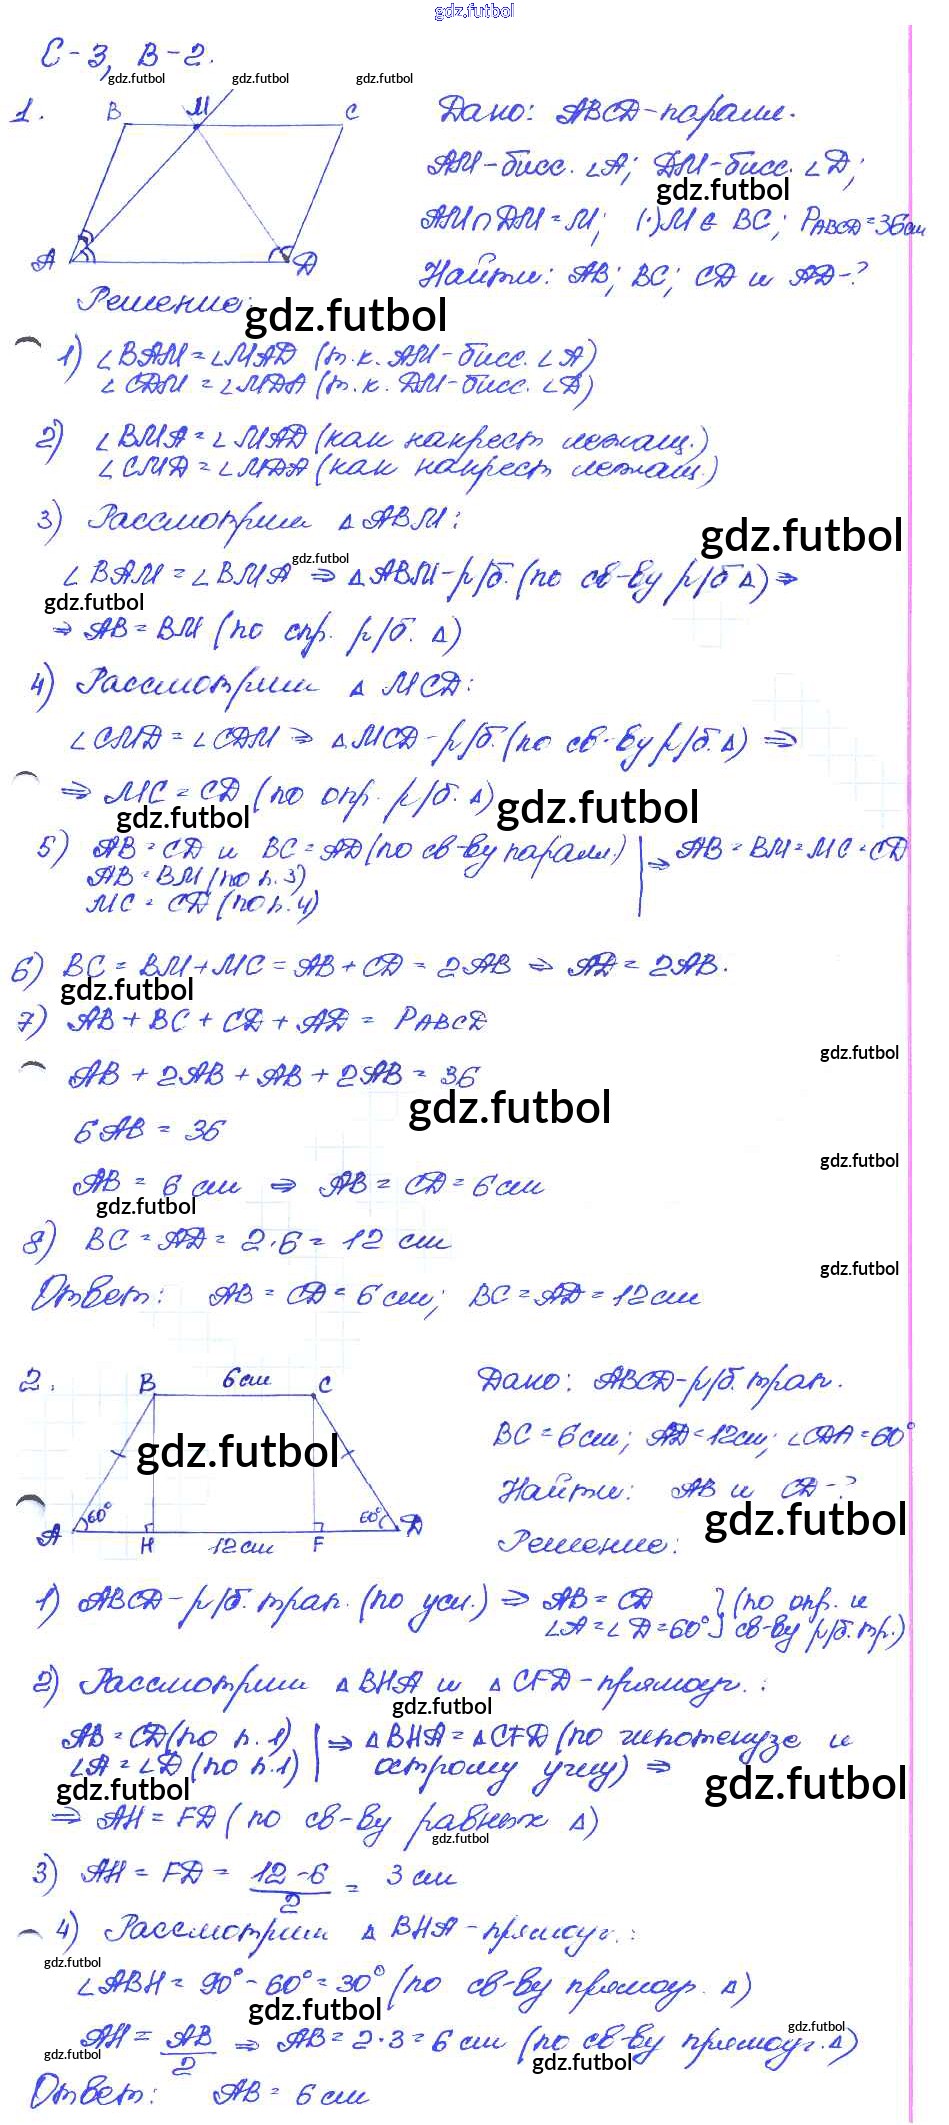 gdz.futbol
С-3, В-2.
gdz.futbol gdz.futbol gdz.futbol
1. B M C
A D
Дано: ABCD-паралл.
AM-бисс. ∠A; DM-бисс. ∠D;
gdz.futbol
AM∩DM=M; (·)M∈BC; P ABCD=36см
Найти: AB; BC; CD и AD-?
Решение:
gdz.futbol
1) ∠BAM=∠MAD (т.к. AM-бисс. ∠A)
∠CDM=∠MDA (т.к. DM-бисс. ∠D)
2) ∠BMA=∠MAD (как накрест лежащ.)
∠CMD=∠MDA (как накрест лежащ.)
3) Рассмотрим △ABM:
gdz.futbol
gdz.futbol
∠BAM=∠BMA ⇒ △ABM-р/б. (по св-ву р/б △) ⇒
gdz.futbol
⇒ AB=BM (по опр. р/б. △)
4) Рассмотрим △MCD:
∠CMD=∠CDM ⇒ △MCD-р/б. (по св-ву р/б. △) ⇒
⇒ MC=CD (по опр. р/б. △)
gdz.futbol
gdz.futbol
5) AB=CD и BC=AD (по св-ву паралл.) ⇒ AB=BM=MC=CD
AB=BM (по п.3)
MC=CD (по п.4)
6) BC=BM+MC=AB+CD=2AB ⇒ AD=2AB.
gdz.futbol
7) AB+BC+CD+AD=P ABCD
gdz.futbol
AB+2AB+AB+2AB=36
gdz.futbol
6AB=36
gdz.futbol
AB=6 см ⇒ AB=CD=6см
gdz.futbol
8) BC=AD=2·6=12 см
gdz.futbol
Ответ: AB=CD=6см; BC=AD=12см
2. B 6см C
gdz.futbol
A 60° 60° D
H 12см F
Дано: ABCD-р/б. трап.
BC=6см; AD=12см; ∠CDA=60°
Найти: AB и CD-?
gdz.futbol
Решение:
1) ABCD-р/б. трап. (по усл.) ⇒ AB=CD } (по опр. и
∠A=∠D=60° св-ву р/б. тр.)
2) Рассмотрим △BHA и △CFD-прямоуг.:
gdz.futbol
AB=CD (по п.1) ⇒ △BHA=△CFD (по гипотенузе и
∠A=∠D (по п.1) острому углу) ⇒
gdz.futbol gdz.futbol
⇒ AH=FD (по св-ву равных △)
gdz.futbol
3) AH=FD=(12-6)/2=3 см
4) Рассмотрим △BHA-прямоуг.:
gdz.futbol
∠ABH=90°-60°=30° (по св-ву прямоуг. △)
gdz.futbol
gdz.futbol
AH=AB/2 ⇒ AB=2·3=6 см (по св-ву прямоуг. △)
gdz.futbol gdz.futbol
Ответ: AB=6см